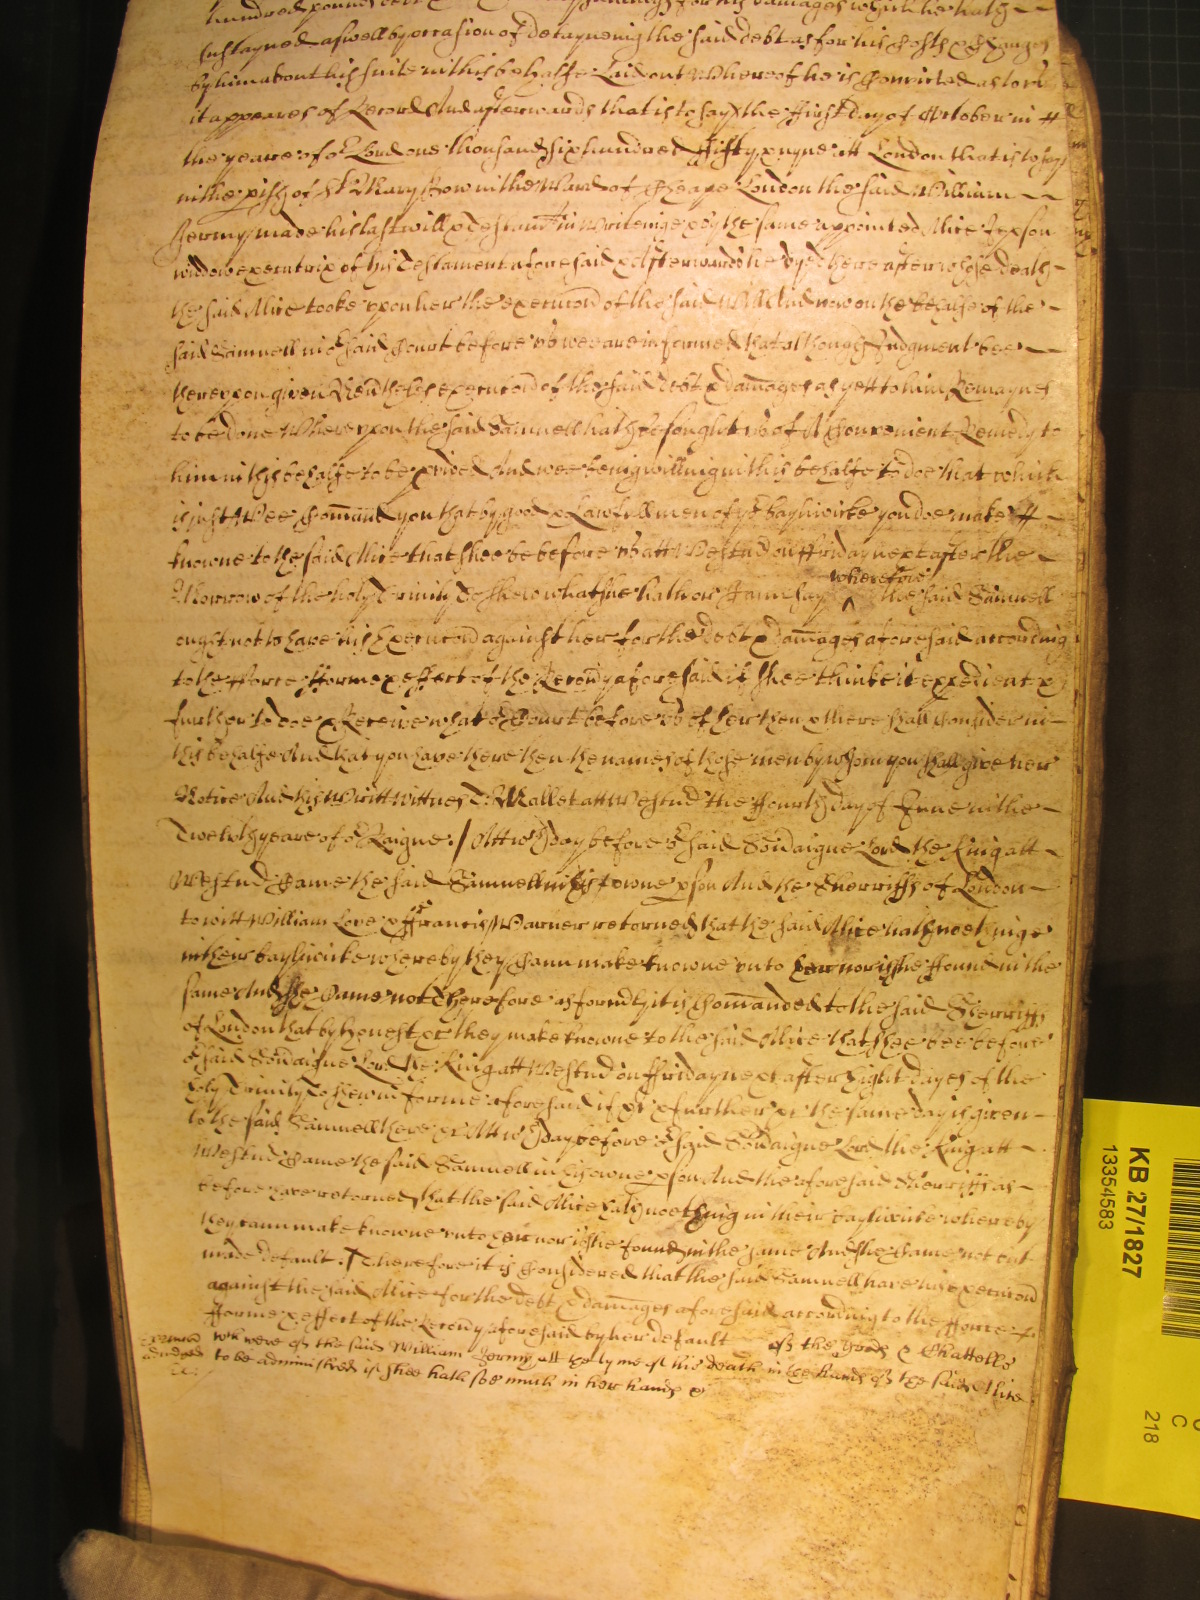 hundred pounds debt
Sustayned aswell by occasion of detayneing the said debt as for his Costs & Charges
by him about his suite in this behalfe Laid out Whereof he is Convicted as to us
it appeares of Record And afterwards that is to say the ffirst day of October in
the yeare of or Lord one thousand six hundred ffifty & nyne att London that is to say
in the pish of St Mary Bow in the Ward of Cheape London the said William
Jermy made his last will & Testamt in Writeinge & by the same appointed Alice
widdow executrix of his Testament aforesaid & Afterwards he dyed there after whose death
the said Alice tooke upon her the execucon of the said Will And now on the behalfe of the
said Samuell in or said Court before us wee are informed that although Judgment bee
thereupon given Neverthelesse execucon of the said debt & damages as yett to him Remaynes
to be done Whereupon the said Samuell hath besought us of A Convenient Remedy to
him in this behalfe to be pvided And wee being willing in this behalfe to doe that which
is just Wee Comand you that by good & Lawfull men of yor bayliwicke you doe make
knowne to the said Alice that shee be before us att Westmr on ffriday next after the
Morrow of the holy Trinity To shew what she hath or Cann say wherefore the said Samuell
ought not to have his Execucon against her for the debt & damages aforesaid according
to the fforce fforme & effect of the Recovy aforesaid if shee thinke it expedient &
further to doe & Receive what or Court before us of her then & there shall Consider in
this behalfe And that you have there then the names of those men by whom you shall give her
Notice And this Writt Wittnes T: Mallet att Westmr the ffourth day of June in the
Twelvth yeare of or Raigne. / Att wch day before or said Soveraigne Lord the King att
Westmr Came the said Samuell in his owne pson And the Sherriffs of London
to witt William Love & ffrancis Warner returned that the said Alice hath noethinge
in their bayliwicke whereby they Cann make knowne unto her nor is she ffound in the
same And she Came not Therefore as formerly it is Comanded to the said Sherriffs
of London that by honest &c they make knowne to the said Alice that shee bee before
or said Soveraigne Lord the King att Westmr on ffriday next after Eight dayes of the
holy Trinity To shew in forme aforesaid if &c & further &c the same day is given
to the said Samuell there &c Att wch day before or said Soveraigne Lord the King att
Westmr Came the said Samuell in his owne pson And the aforesaid Sherriffs as
before have returned that the said Alice hath noething in their bayliwicke whereby
they cann make knowne unto her nor is she found in the same And she Came not but
made default. / Therefore it is Considered that the said Samuell have his execucon
against the said Alice for the debt & damages aforesaid according to the fforce
fforme & effect of the Recovy aforesaid by her default of the goods & Chattells
wch were of the said William Jermy att the tyme of his death in the hands of the said Alice
to be administred if shee hath soe much in her hands &c
Execucon
adiudged
KB 27/1827
13354583
C
218